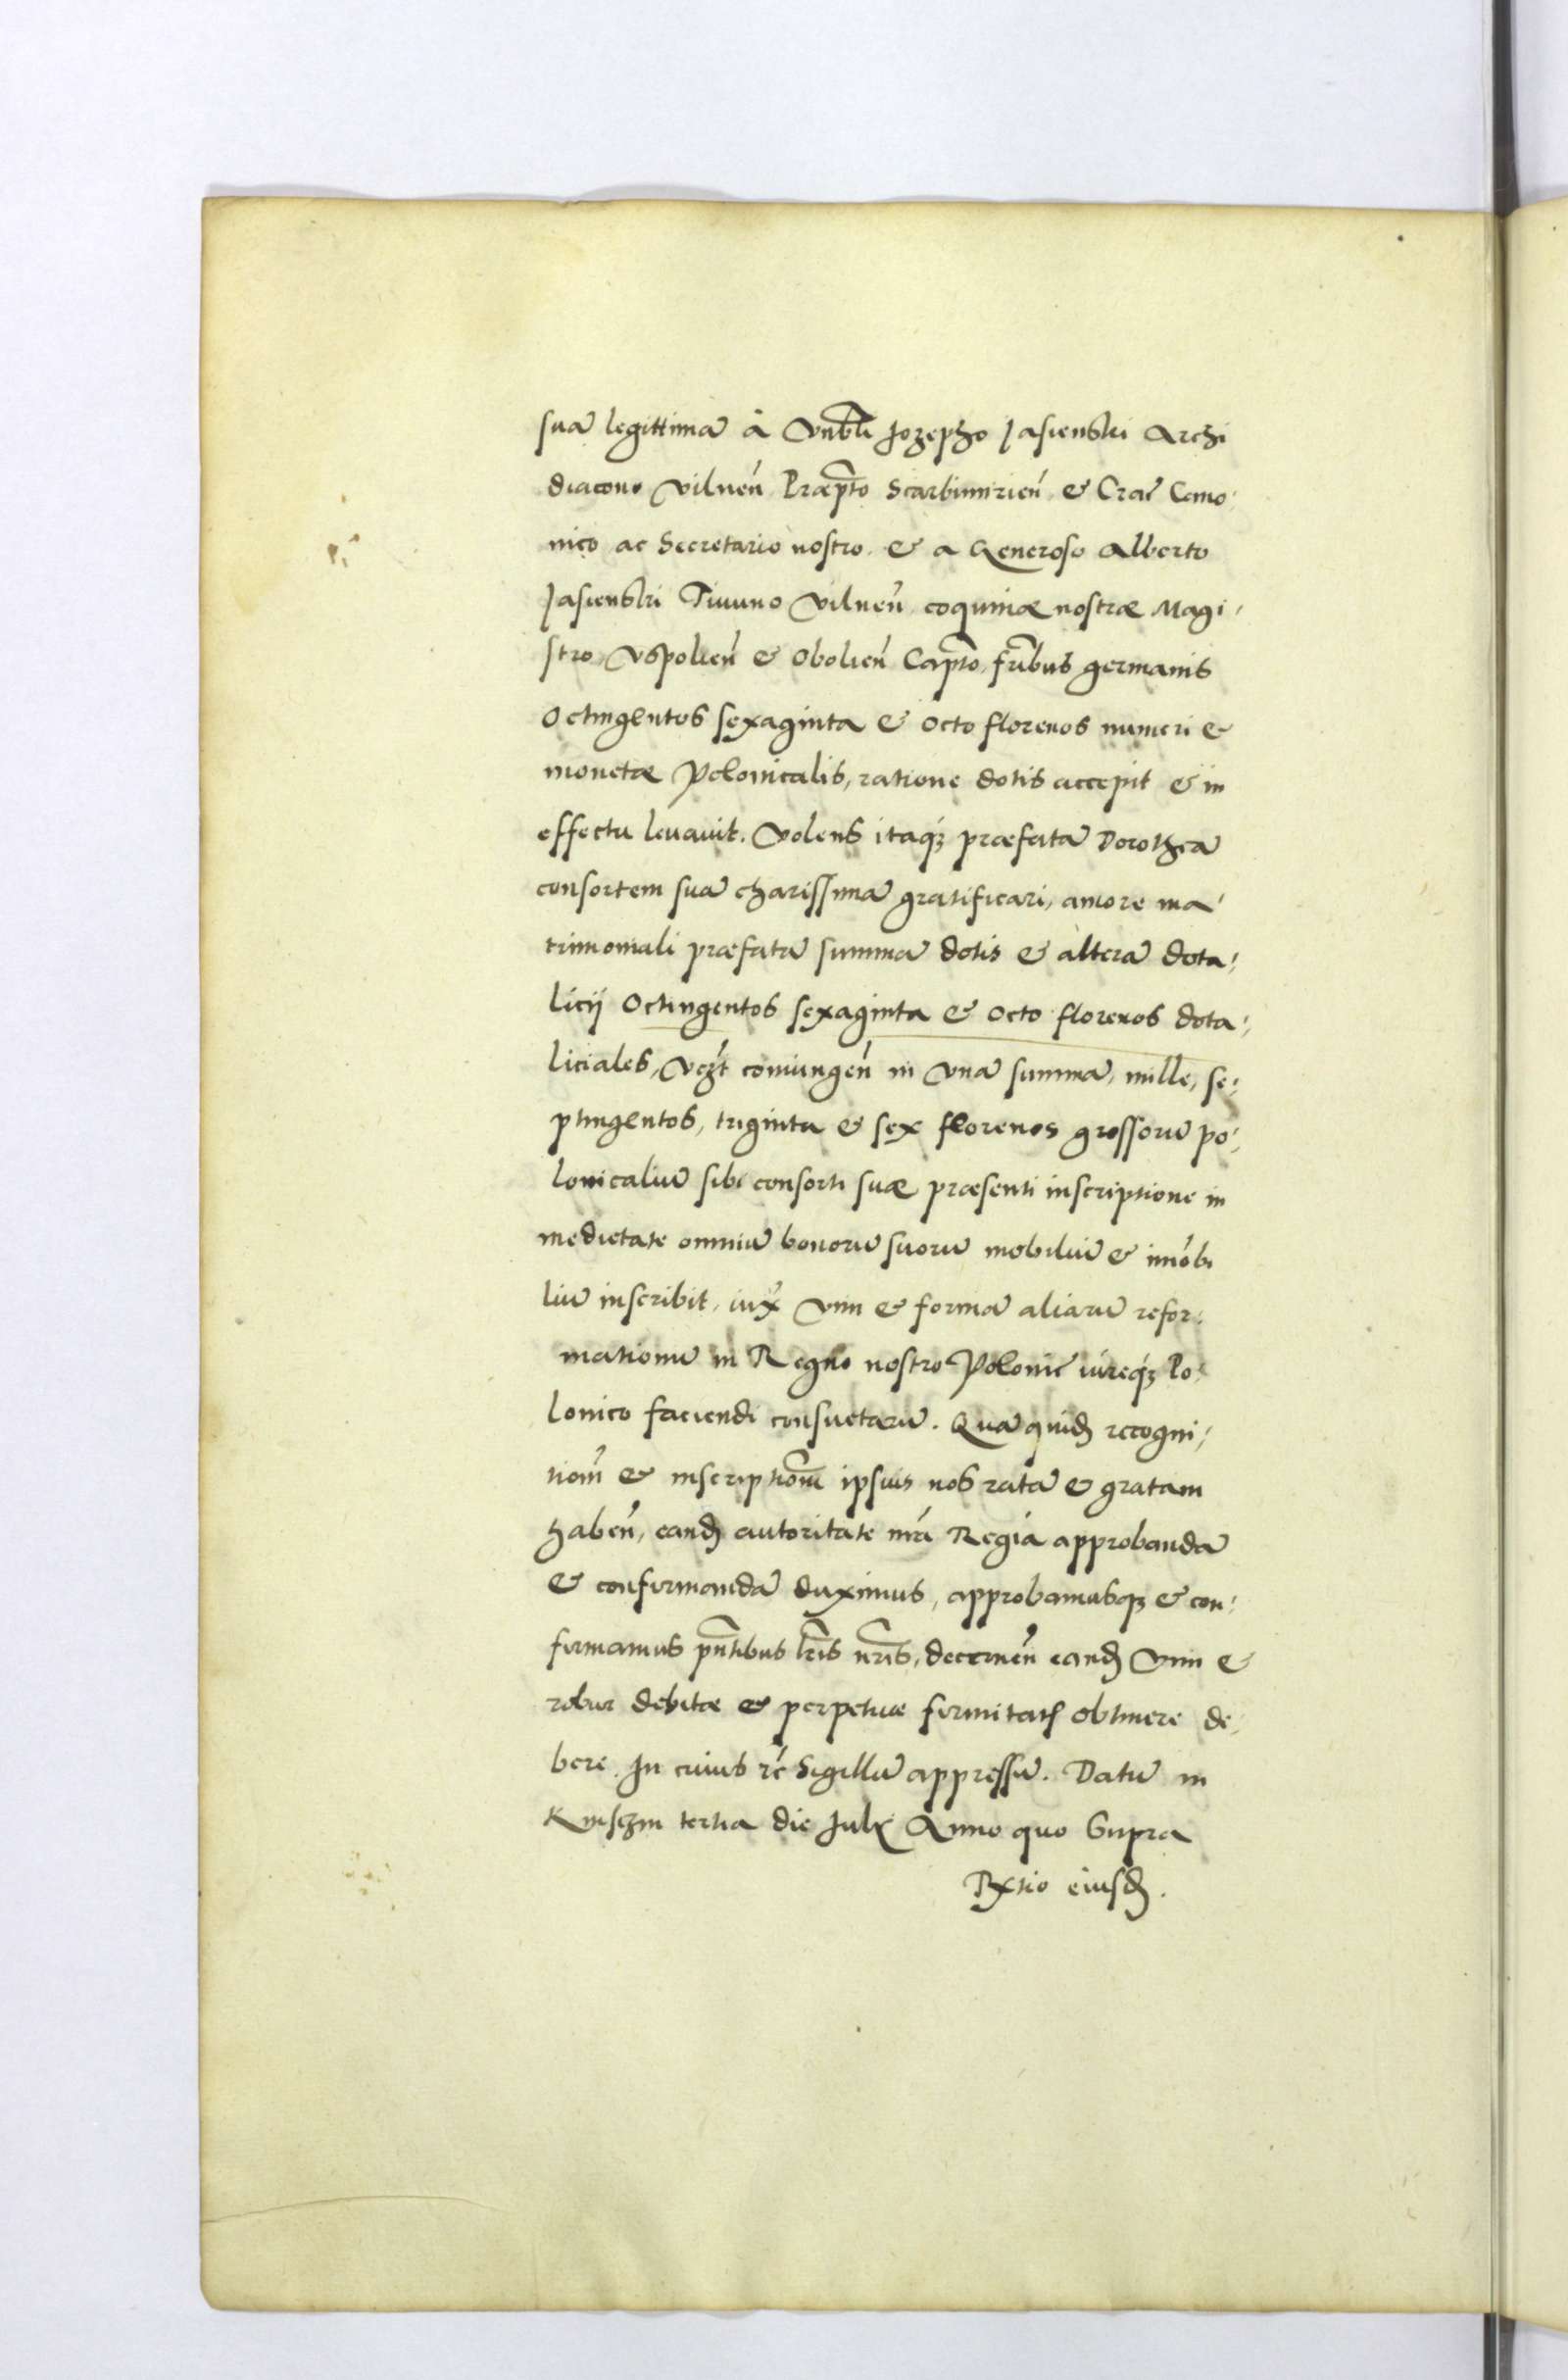 suā legittimā à Vn̄bli Jozepho Jasienski Archi
diacono Vilneñ Præpt̄o Scarbimirien̄ & Crac̄ Cano:
nico ac Secretario nostro & a Generoso Alberto
Jasienski Tiuuno Vilnen̄ coquinæ nostræ Magi:
stro, Vspolien̄ & Obolien̄ Capt̄o fr̄ibus germanis
Octingentos sexaginta & octo florenos numeri &
monetæ Polonicalis, ratione dotis accepit & in
effectu leuauit. Volens itaq₃ præfatā Dorotheā
consortem suā charissimā gratificari, amore ma:
trimoniali præfatā summā dotis & alterā dota:
licij Octingentos sexaginta & octo florenos dota:
liciales, vcz̄t coniungen̄ in vnā summā, mille, se:
ptingentos, triginta & sex florenos grossorū po:
lonicaliū sibi consorti suæ præsenti inscriptione in
medietate omniū bonorū suorū mobiliū & im̄obi
liū inscribit, iux̄ vim & formā aliarū refor:
mationū in Regno nostro Polonię iureq₃ Po:
lonico faciendi consuetarū. Quā quid̄ recogni:
tiom̄ & inscriptiom̄ ipsius nos ratā & gratam
haben̄, eand̄ autoritate nrā Regia approbandā
& confirmandā duximus, approbamusq₃ & con:
firmamus pn̄tibus lr̄is nr̄is, decernen̄ eand̄ vim &
robur debitæ & perpetuæ firmitatis obtinere de:
bere. In cuius rei Sigillū appressū. Datū in
Knischin tertia die Julij Anno quo supra
Rx̄tio eiusd̄.